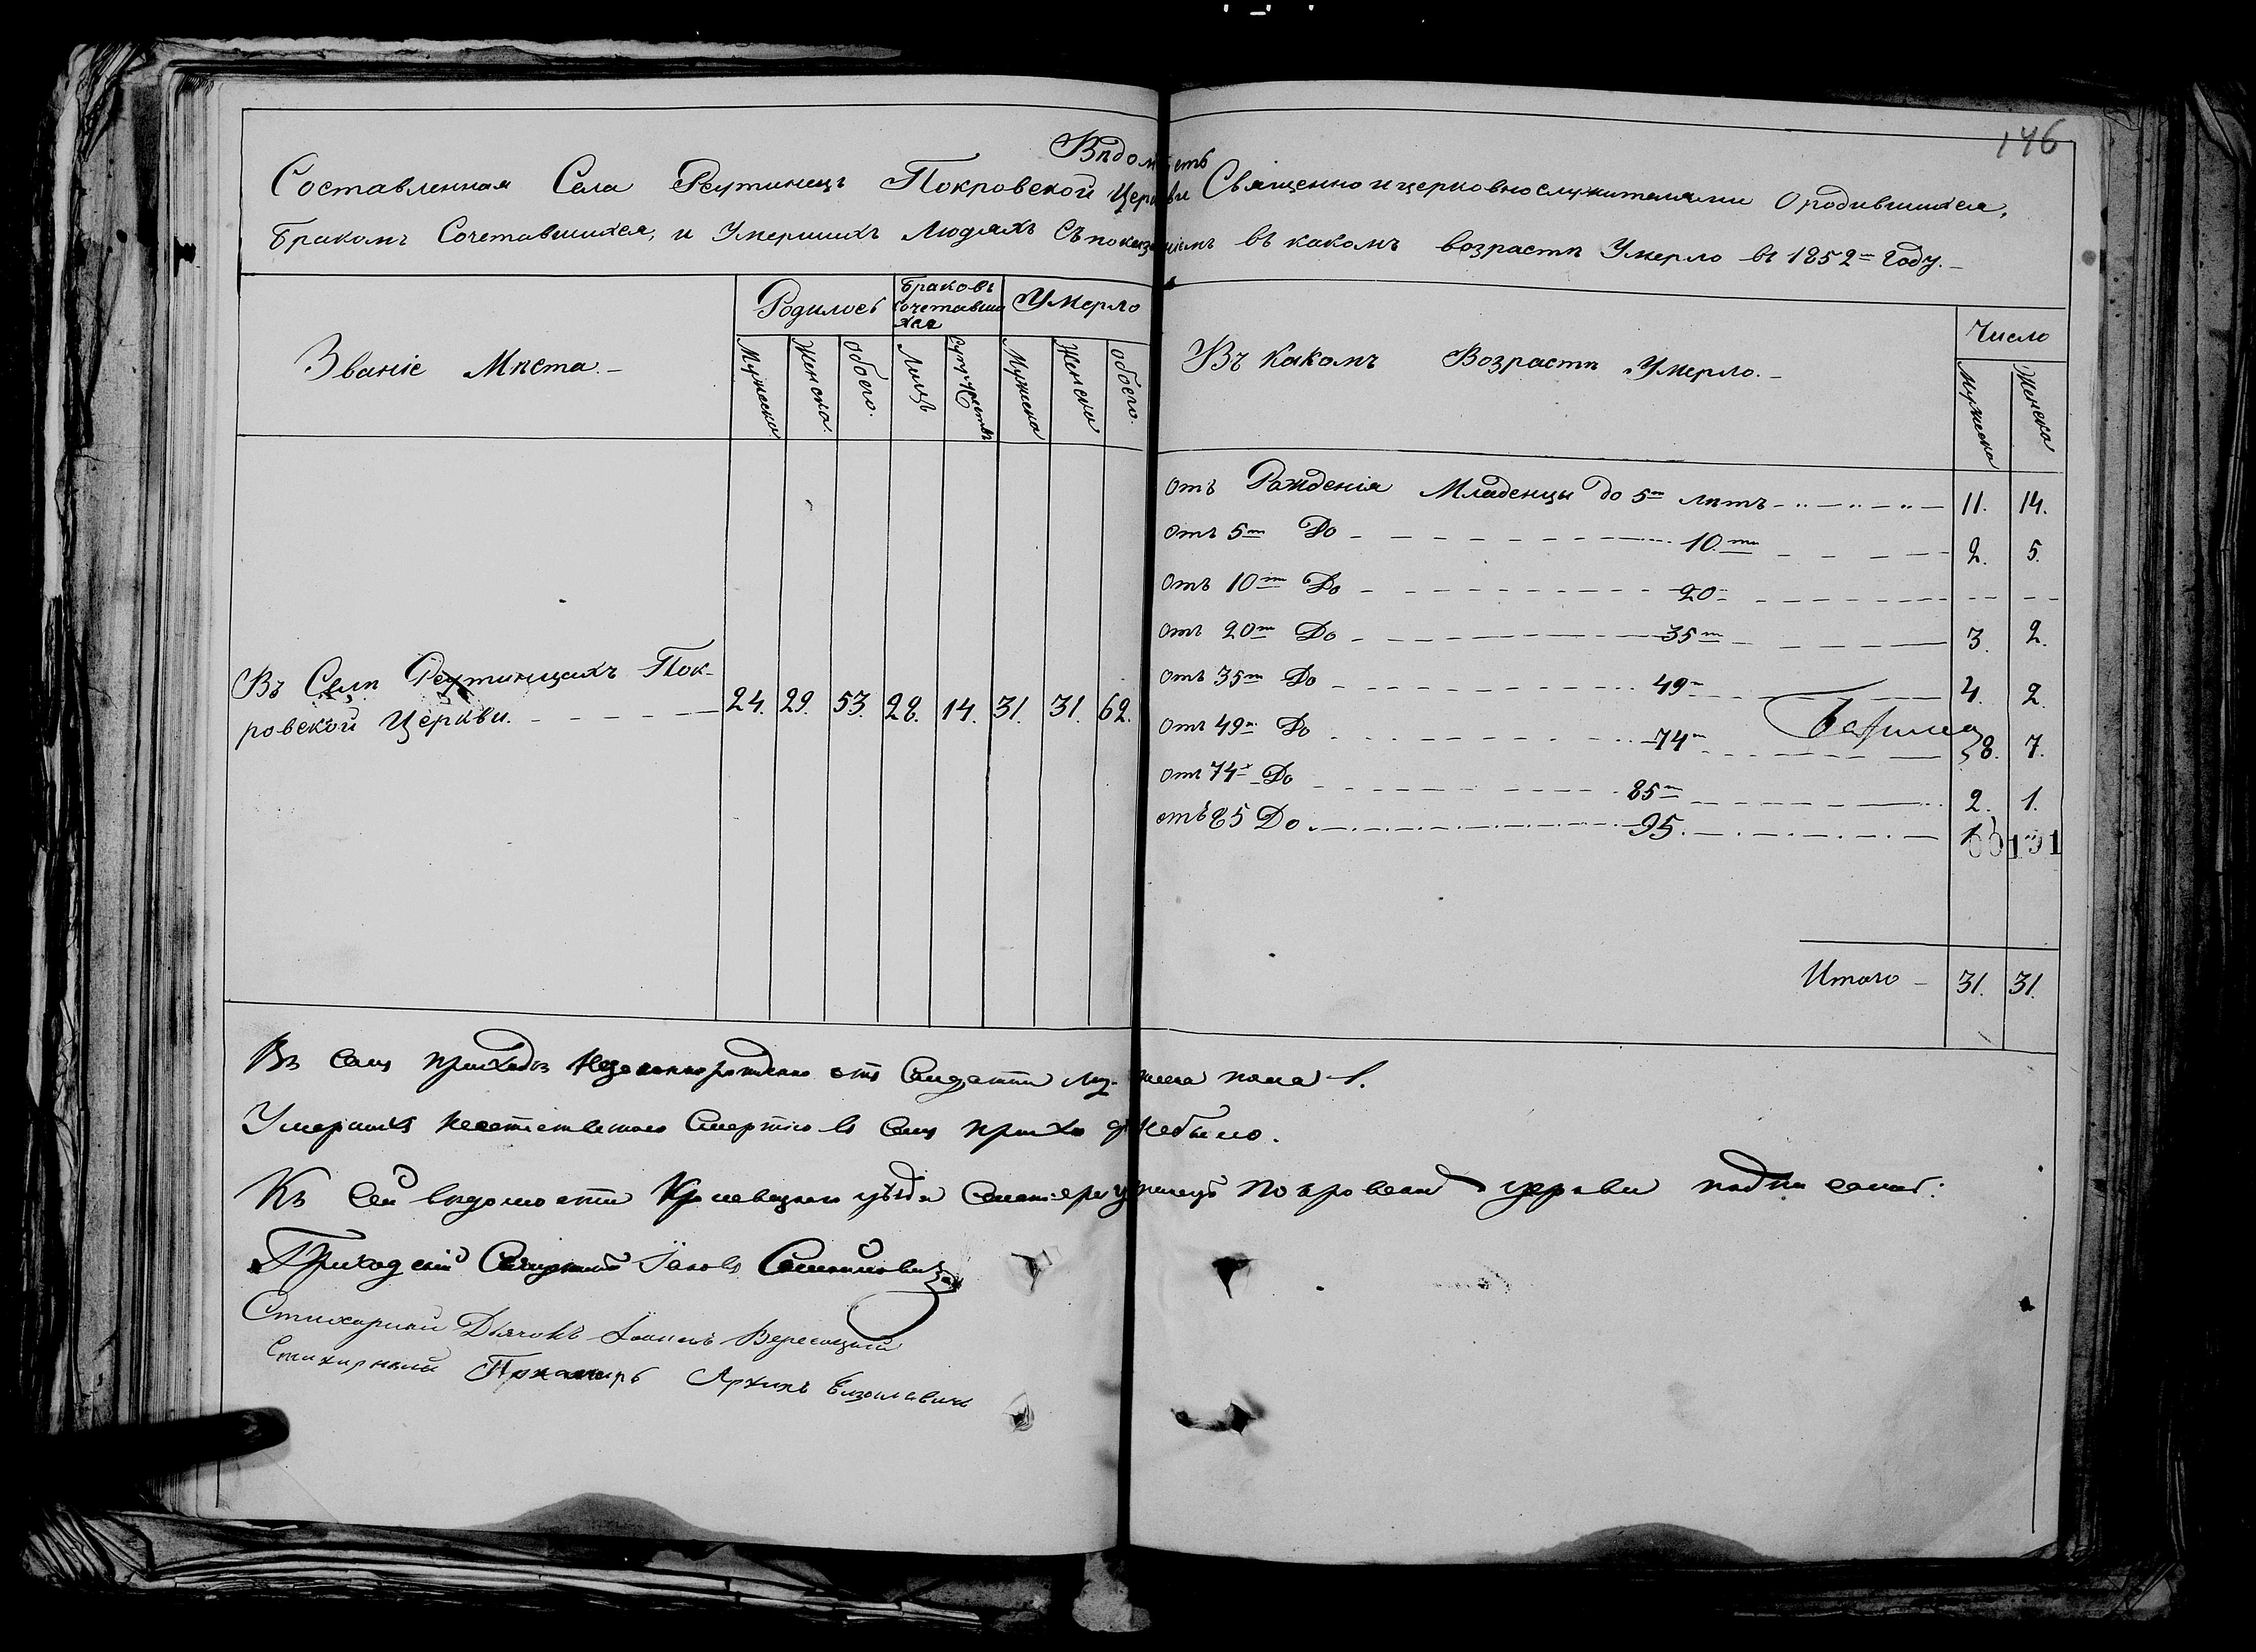 146
Вѣдомость
Составленная Села Реутинецъ Покровской Церкви Священно и церковнослужителями О родившихся,
бракомъ Сочетавшихся, и Умершихъ Людяхъ Съ показаніемъ въ какомъ возрастѣ Умерло въ 1852 м Году.
Званіе Мѣста.
Родилось
браковъ Сочетавшихся
Умерло
Мужеска
Женска.
обоего.
Лицъ
Супружествъ
Мужеска
Женска
обоего.
Въ Какомъ Возрастѣ Умерло.
Число
Мужеска
Женска
Въ Селѣ Реутинцахъ Пок-
ровской Церкви. 24. 29. 53. 28. 14. 31. 31. 62.
отъ Рожденія Младенцы до 5 лѣтъ 11. 14.
отъ 5 До 10 2. 5.
отъ 10 До 20
отъ 20 До 35 3. 2.
отъ 35 До 49 4. 2.
отъ 49 До 74 8. 7.
отъ 74 До 85 2. 1.
отъ 85 До 95. 1
Итого 31. 31.
Въ семъ приходѣ Незаконнорожденно отъ Солдатки мужеска пола 1.
Умершихъ неестественною Смертію въ семъ приходѣ Небыло.
Къ Сей вѣдомости Кролевецкаго уѣзда Села Реутинецъ Покровской церкви подписались:
Приходскій Священникъ Іаковъ
Стихарный Дьячокъ Іоаннъ
Стихарный Пономарь Архипъ